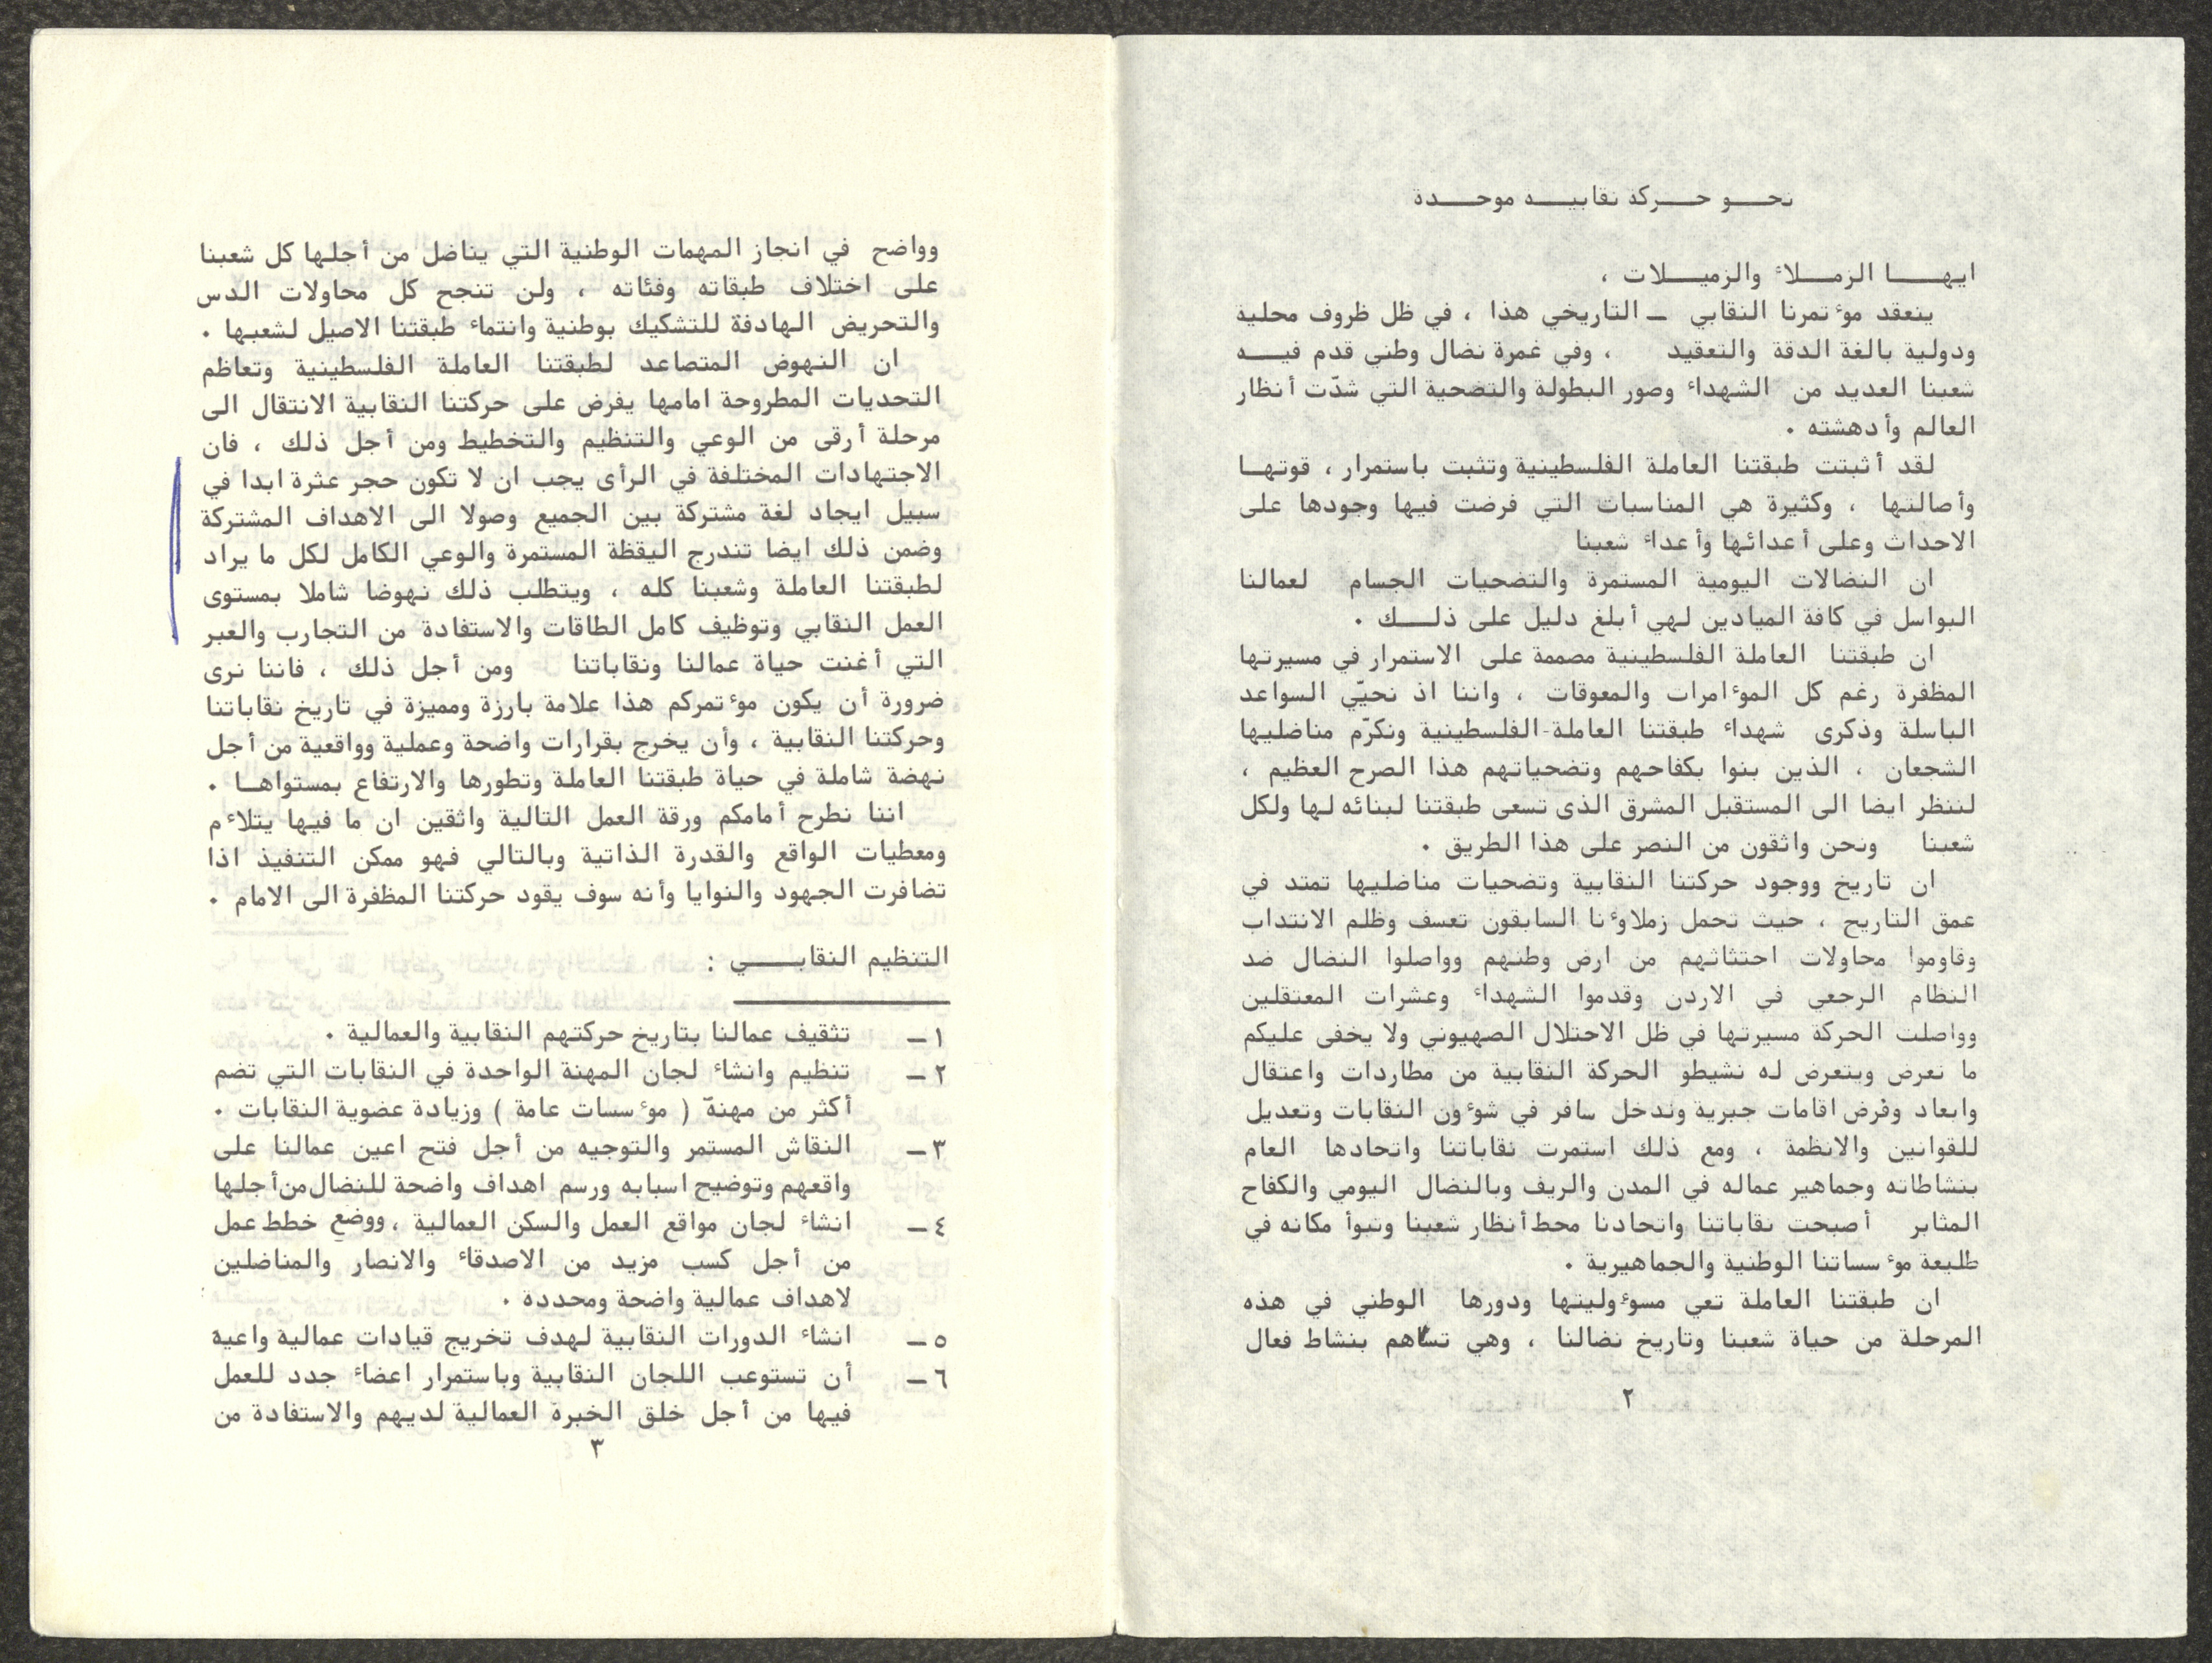 نحو حركة نقابيه موحدة
ايها الزملاء والزميلات ،
ينعقد موءتمرنا النقابي ـ التاريخي هذا ، في ظل ظروف محلية
ودولية بالغة الدقة والتعقيد ، وفي غمرة نضال وطني قدم فيه
شعبنا العديد من الشهداء وصور البطولة والتضحية التي شدّت أنظار
العالم وأدهشته .
لقد أثبتت طبقتنا العاملة الفلسطينية وتثبت باستمرار ، قوتها
وأصالتها ، وكثيرة هي المناسبات التي فرضت فيها وجودها على
الاحداث وعلى أعدائها وأعداء شعبنا
ان النضالات اليومية المستمرة والتضحيات الجسام لعمالنا
البواسل في كافة الميادين لهي أبلغ دليل على ذلك .
ان طبقتنا العاملة الفلسطينية مصممة على الاستمرار في مسيرتها
المظفرة رغم كل الموءامرات والمعوقات ، واننا اذ نحيّي السواعد
الباسلة وذكرى شهداء طبقتنا العاملة-الفلسطينية ونكرّم مناضليها
الشجعان ، الذين بنوا بكفاحهم وتضحياتهم هذا الصرح العظيم ،
لننظر ايضا الى المستقبل المشرق الذى تسعى طبقتنا لبنائه لها ولكل
شعبنا ونحن واثقون من النصر على هذا الطريق .
ان تاريخ ووجود حركتنا النقابية وتضحيات مناضليها تمتد في
عمق التاريخ ، حيث تحمل زملاوءنا السابقون تعسف وظلم الانتداب
وقاوموا محاولات اجتثاثهم من ارض وطنهم وواصلوا النضال ضد
النظام الرجعي في الاردن وقدموا الشهداء وعشرات المعتقلين
وواصلت الحركة مسيرتها في ظل الاحتلال الصهيوني ولا يخفى عليكم
ما تعرض ويتعرض له نشيطو الحركة النقابية من مطاردات واعتقال
وابعاد وفرض اقامات جبرية وتدخل سافر في شوءون النقابات وتعديل
للقوانين والانظمة ، ومع ذلك استمرت نقاباتنا واتحادها العام
بنشاطاته وجماهير عماله في المدن والريف وبالنضال اليومي والكفاح
المثابر أصبحت نقاباتنا واتحادنا محط أنظار شعبنا وتبوأ مكانه في
طليعة موءسساتنا الوطنية والجماهيرية .
ان طبقتنا العاملة تعي مسوءوليتها ودورها الوطني في هذه
المرحلة من حياة شعبنا وتاريخ نضالنا ، وهي تساهم بنشاط فعال
٢
وواضح في انجاز المهمات الوطنية التي يناضل من أجلها كل شعبنا
على اختلاف طبقاته وفئاته ، ولن تنجح كل محاولات الدس
والتحريض الهادفة للتشكيك بوطنية وانتماء طبقتنا الاصيل لشعبها .
ان النهوض المتصاعد لطبقتنا العاملة الفلسطينية وتعاظم
التحديات المطروحة امامها يفرض على حركتنا النقابية الانتقال الى
مرحلة أرقى من الوعي والتنظيم والتخطيط ومن أجل ذلك ، فان
الاجتهادات المختلفة في الرأى يجب ان لا تكون حجر عثرة ابدا في
سبيل ايجاد لغة مشتركة بين الجميع وصولا الى الاهداف المشتركة
وضمن ذلك ايضا تندرج اليقظة المستمرة والوعي الكامل لكل ما يراد
لطبقتنا العاملة وشعبنا كله ، ويتطلب ذلك نهوضا شاملا بمستوى
العمل النقابي وتوظيف كامل الطاقات والاستفادة من التجارب والعبر
التي أغنت حياة عمالنا ونقاباتنا ومن أجل ذلك ، فاننا نرى
ضرورة أن يكون موءتمركم هذا علامة بارزة ومميزة في تاريخ نقاباتنا
وحركتنا النقابية ، وأن يخرج بقرارات واضحة وعملية وواقعية من أجل
نهضة شاملة في حياة طبقتنا العاملة وتطورها والارتفاع بمستواها .
اننا نطرح أمامكم ورقة العمل التالية واثقين ان ما فيها يتلاءم
ومعطيات الواقع والقدرة الذاتية وبالتالي فهو ممكن التنفيذ اذا
تضافرت الجهود والنوايا وأنه سوف يقود حركتنا المظفرة الى الامام .
التنظيم النقابي :
١ـ تثقيف عمالنا بتاريخ حركتهم النقابية والعمالية .
٢ـ تنظيم وانشاء لجان المهنة الواحدة في النقابات التي تضم
أكثر من مهنة ( موءسسات عامة ) وزيادة عضوية النقابات .
٣ـ النقاش المستمر والتوجيه من أجل فتح اعين عمالنا على
واقعهم وتوضيح اسبابه ورسم اهداف واضحة للنضال من أجلها
٤ـ انشاء لجان مواقع العمل والسكن العمالية ، ووضع خطط عمل
من أجل كسب مزيد من الاصدقاء والانصار والمناضلين
لاهداف عمالية واضحة ومحددة .
٥ـ انشاء الدورات النقابية لهدف تخريج قيادات عمالية واعية
٦ـ أن تستوعب اللجان النقابية وباستمرار اعضاء جدد للعمل
فيها من أجل خلق الخبرة العمالية لديهم والاستفادة من
٣